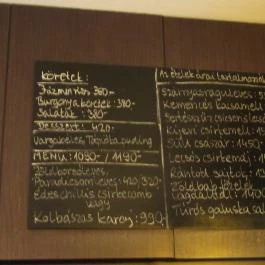 Köretek:
Párolt rizs 360-
Burgonya köretek: 380-
Saláták: 380-
Desszert: 420-
Vargabéles, Tápióka puding
MENÜ: 1090- / 1190-
Zöldborsóleves,
Paradicsomleves: 420/320-
Édes chilis csirkecomb
vagy
Kolbászos karaj: 990-
Az ételek árai tartalmazzák
Szárnyasraguleves:
Kemencés kacsamell:
csirkemell:
Sült császár: 1450-
Lecsós csirkemáj:
Rántott sajt
Zöldbab főzelék
fasírttal: 1400
Túrós galuska